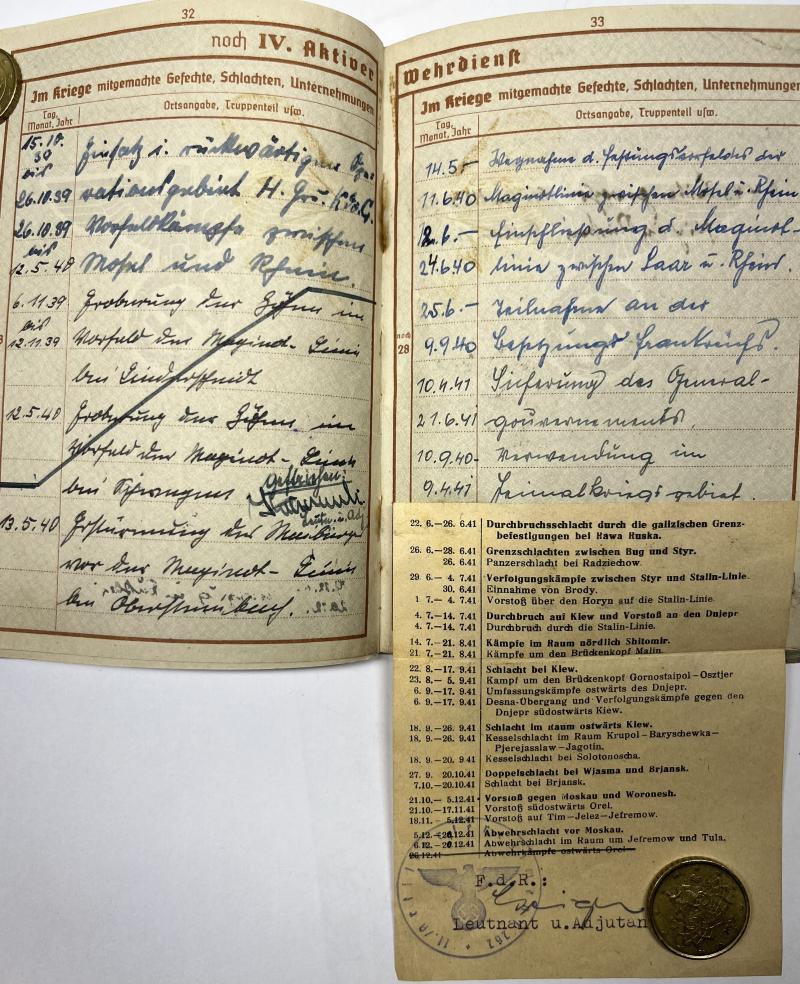 32
noch IV. Aktiver
Im Kriege mitgemachte Gefechte, Schlachten, Unternehmungen
Tag, Monat, Jahr
Ortsangabe, Truppenteil usw.
15.10.39 bis Einsatz i. rückwärtigen Ope-
26.10.39 rationsgebiet H. Gru.
26.10.39 Vorfeldkämpfe zwischen
bis
12.5.40 Mosel und Rhein.
6.11.39 Eroberung der Höhen im
bis
12.11.39 Vorfeld der Maginot-Linie
bei
12.5.40 Eroberung der Höhen im
Vorfeld der Maginot-Linie
bei
Gestrichen:
13.5.40 Erstürmung der
vor der Maginot-Linie
bei
33
Wehrdienst
Im Kriege mitgemachte Gefechte, Schlachten, Unternehmungen
Tag, Monat, Jahr
Ortsangabe, Truppenteil usw.
14.5.– Wegnahme d. Festungsvorfeldes der
11.6.40 Maginotlinie zwischen Mosel u. Rhein
12.6.– Einschließung d. Maginot-
24.6.40 linie zwischen Saar u. Rhein.
25.6.– Teilnahme an der
9.9.40 Besetzung Frankreichs.
noch
28
10.4.41 Sicherung des General-
21.6.41 gouvernements.
10.9.40- Verwendung im
9.4.41 Heimatkriegsgebiet.
22. 6.—26. 6.41 Durchbruchsschlacht durch die galizischen Grenz-
befestigungen bei Rawa Ruska.
26. 6.—28. 6.41 Grenzschlachten zwischen Bug und Styr.
26. 6.41 Panzerschlacht bei Radziechow.
29. 6.— 4. 7.41 Verfolgungskämpfe zwischen Styr und Stalin-Linie.
30. 6.41 Einnahme von Brody.
1. 7.— 4. 7.41 Vorstoß über den Horyn auf die Stalin-Linie.
4. 7.—14. 7.41 Durchbruch auf Kiew und Vorstoß an den Dnjepr
4. 7.—14. 7.41 Durchbruch durch die Stalin-Linie.
14. 7.—21. 8.41 Kämpfe im Raum nördlich Shitomir.
21. 7.—21. 8.41 Kämpfe um den Brückenkopf Malin.
22. 8.—17. 9.41 Schlacht bei Kiew.
23. 8.— 5. 9.41 Kampf um den Brückenkopf Gornostaipol—Osztjer
6. 9.—17. 9.41 Umfassungskämpfe ostwärts des Dnjepr.
6. 9.—17. 9.41 Desna-Übergang und Verfolgungskämpfe gegen den
Dnjepr südostwärts Kiew.
18. 9.—26. 9.41 Schlacht im Raum ostwärts Kiew.
18. 9.—26. 9.41 Kesselschlacht im Raum Krupol—Baryschewka—
Pjerejasslaw—Jagotin.
18. 9.—20. 9.41 Kesselschlacht bei Solotonoscha.
27. 9. 20.10.41 Doppelschlacht bei Wjasma und Brjansk.
7.10.—20.10.41 Schlacht bei Brjansk.
21.10.— 5.12.41 Vorstoß gegen Moskau und Woronesh.
21.10.—17.11.41 Vorstoß südostwärts Orel.
18.11.— 5.12.41 Vorstoß auf Tim—Jelez—Jefremow.
5.12.—26.12.41 Abwehrschlacht vor Moskau.
6.12.—26.12.41 Abwehrschlacht im Raum um Jefremow und Tula.
26.12.41 Abwehrkämpfe ostwärts Orel
F.d.R.:
Leutnant u.Adjutan